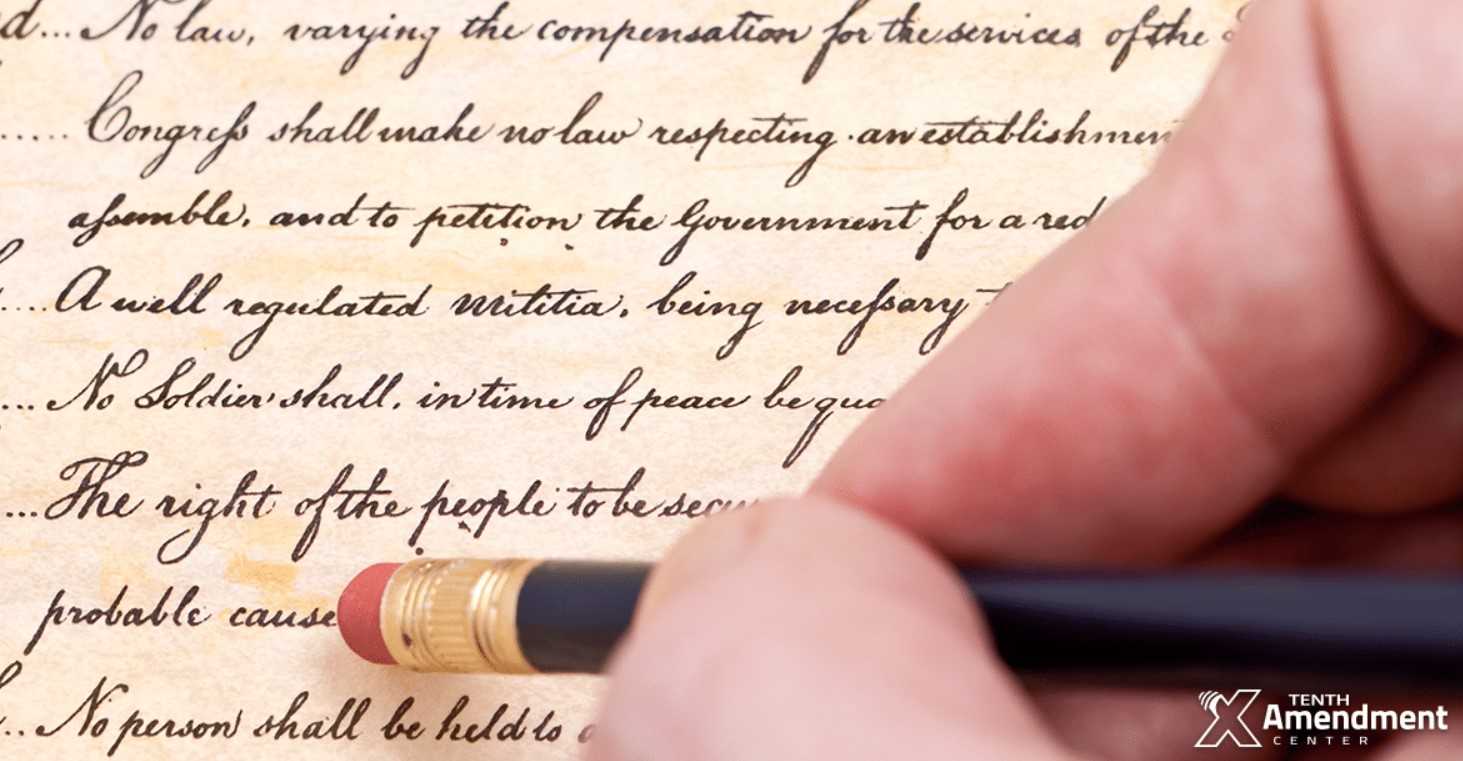 d... No law, varying the compensation for the services of the
..... Congreſs shall make no law respecting an establishmen
aſsemble, and to petition the Government for a red
.... A well regulated militia, being neceſsary t
... No Soldier shall, in time of peace be qua
... The right of the people to be secu
probable cause
.. No person shall be held to a
TENTH
Amendment
CENTER